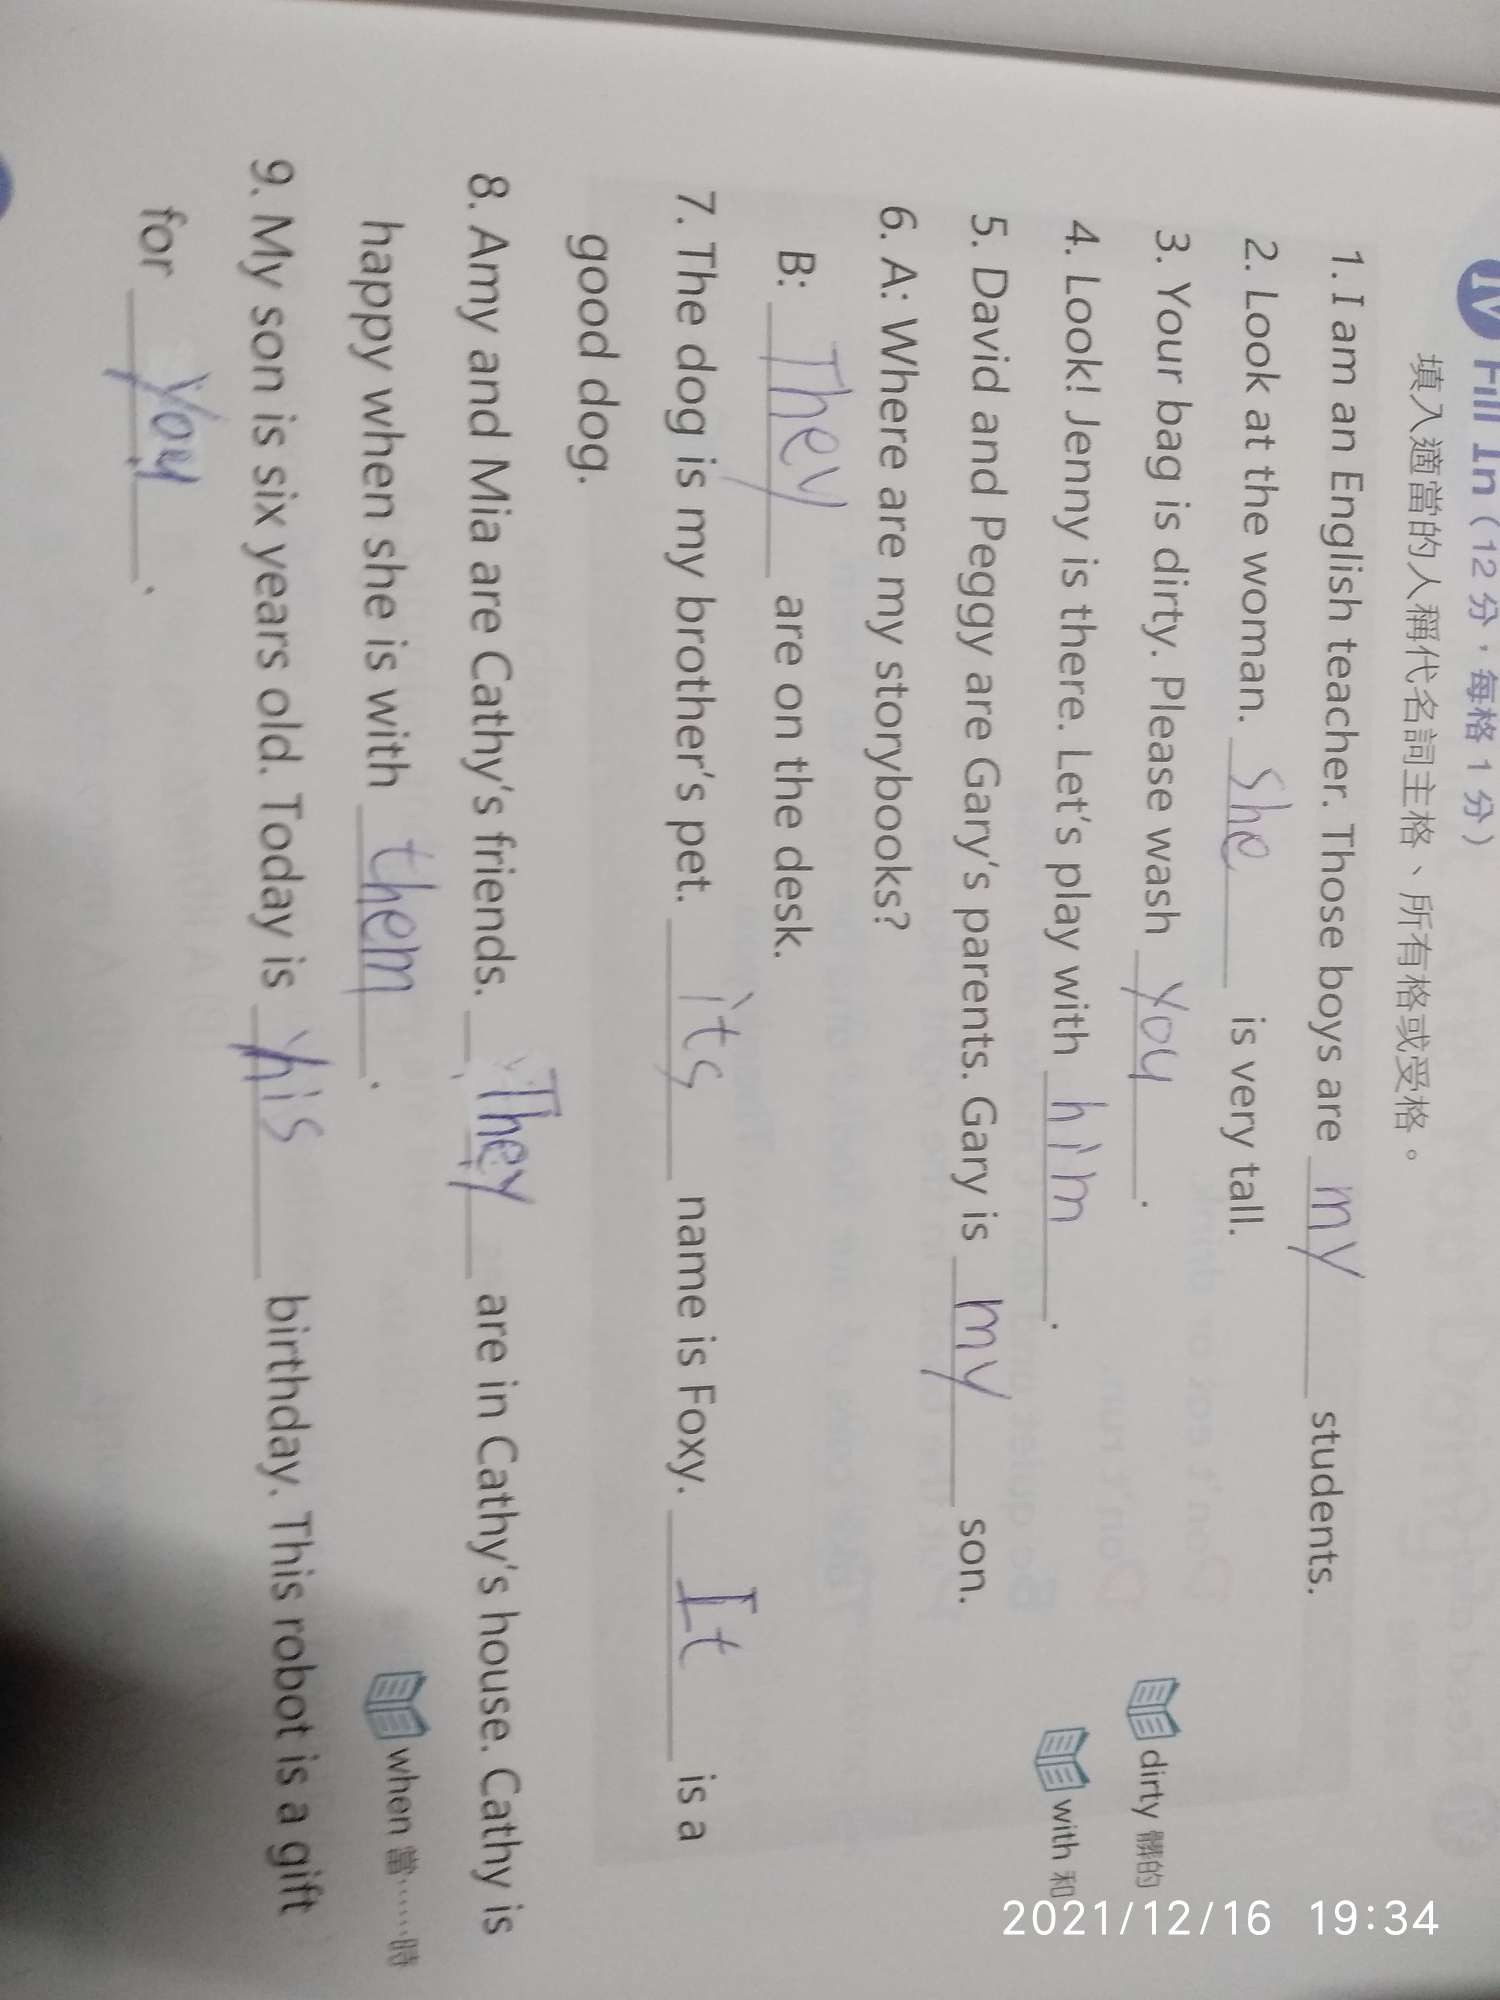 IV Fill In（12 分，每格 1 分）
填入適當的人稱代名詞主格、所有格或受格。
1. I am an English teacher. Those boys are my students.
2. Look at the woman. She is very tall.
3. Your bag is dirty. Please wash you.
dirty 髒的
4. Look! Jenny is there. Let's play with him.
with 和
5. David and Peggy are Gary's parents. Gary is my son.
6. A: Where are my storybooks?
B: They are on the desk.
7. The dog is my brother's pet. its name is Foxy. It is a
good dog.
8. Amy and Mia are Cathy's friends. They are in Cathy's house. Cathy is
happy when she is with them.
when 當……時
9. My son is six years old. Today is his birthday. This robot is a gift
for you.
2021/12/16 19:34